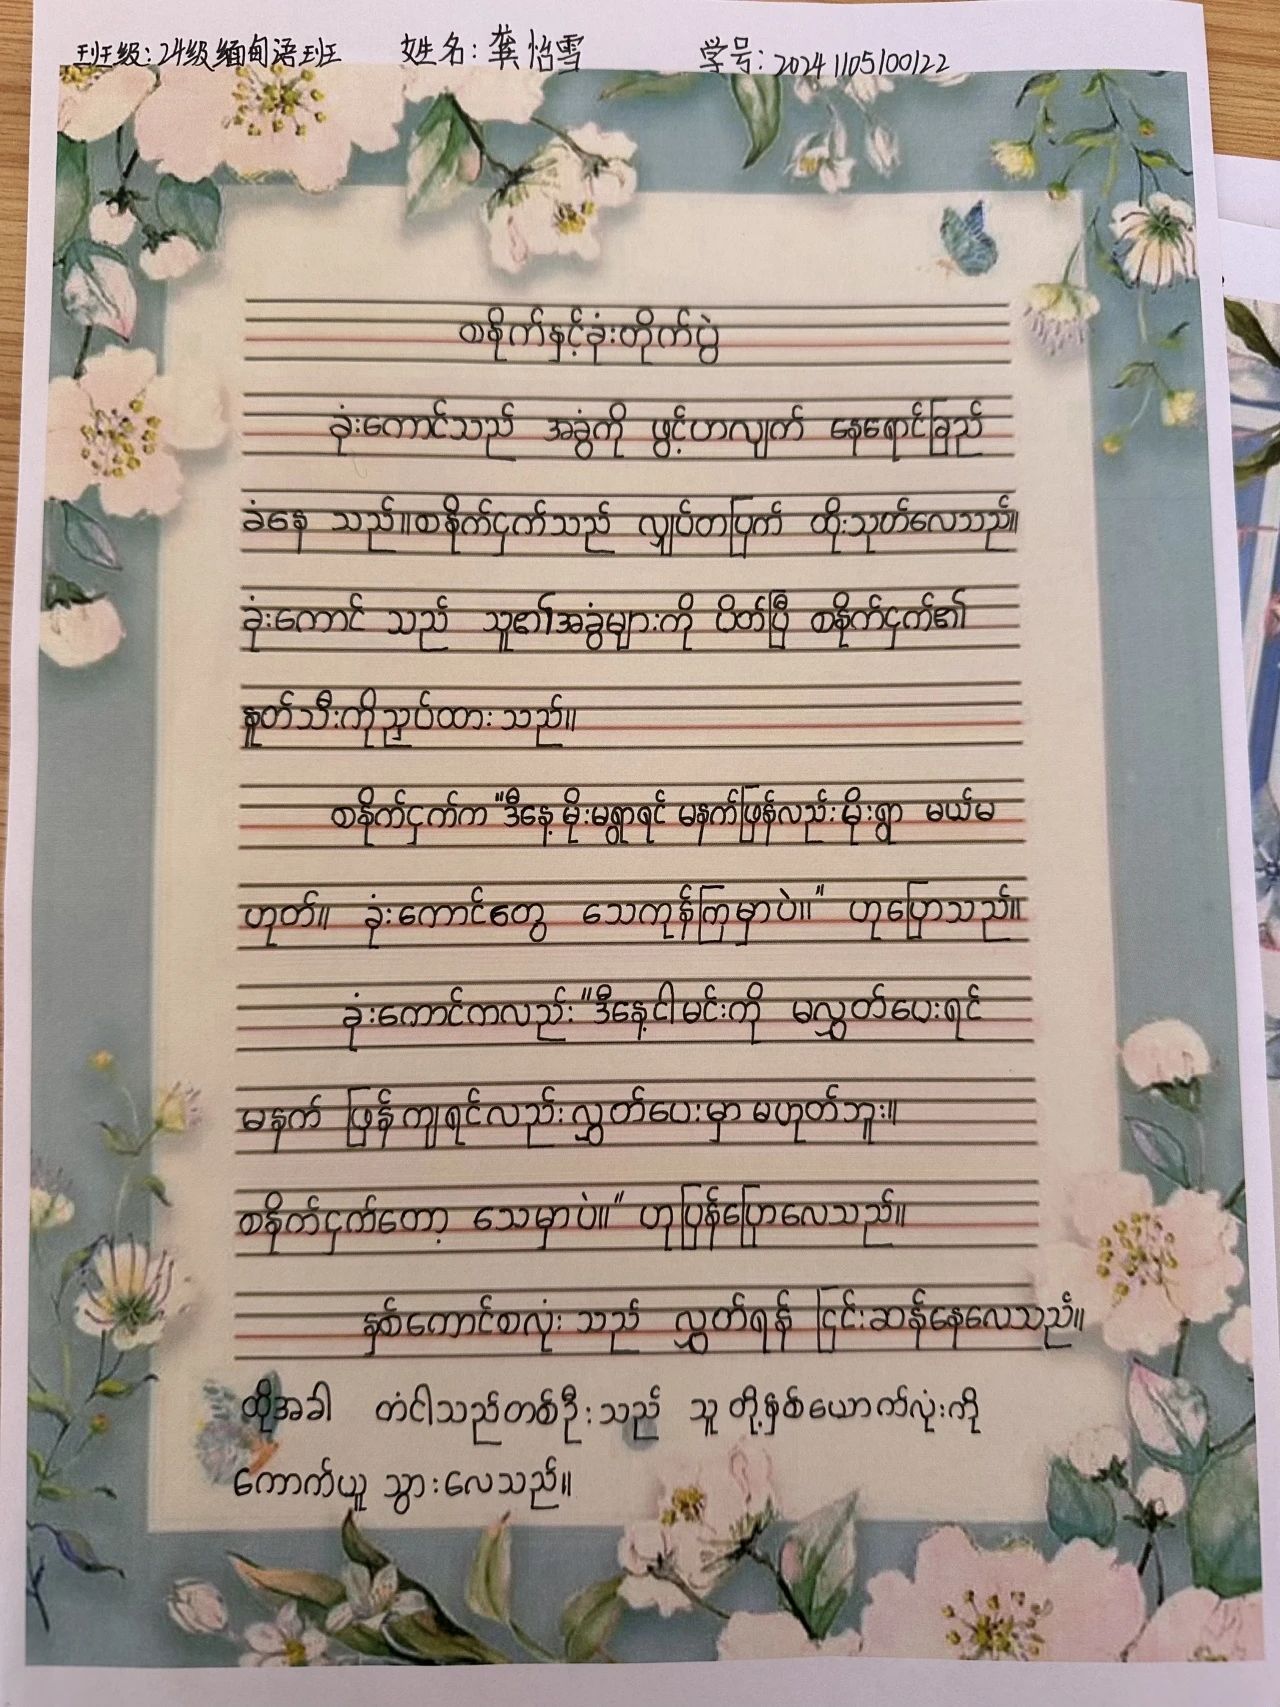 班级:24级缅甸语班 姓名:龚怡雪 学号:20241105100122
စနိုက်နှင့်ခုံးတိုက်ပွဲ
ခုံးကောင်သည် အခွံကို ဖွင့်ဟလျက် နေရောင်ခြည်
ခံနေ သည်။စနိုက်ငှက်သည် လျှပ်တပြက် ထိုးသုတ်လေသည်။
ခုံးကောင် သည် သူ၏အခွံများကို ပိတ်ပြီ စနိုက်ငှက်၏
နှုတ်သီးကိုညှပ်ထား သည်။
စနိုက်ငှက်က "ဒီနေ့ မိုးမရွာရင် မနက်ဖြန်လည်း မိုးရွာ မယ်မ
ဟုတ်။ ခုံးကောင်တွေ သေကုန်ကြမှာပဲ။" ဟုပြောသည်။
ခုံးကောင်ကလည်း "ဒီနေ့ငါ မင်းကို မလွှတ်ပေးရင်
မနက် ဖြန် ကျရင်လည်း လွှတ်ပေးမှာ မဟုတ်ဘူး။
စနိုက်ငှက်တော့ သေမှာပဲ။" ဟုပြန်ပြောလေသည်။
နှစ်ကောင်စလုံး သည် လွှတ်ရန် ငြင်းဆန်နေလေသည်။
ထိုအခါ တံငါသည်တစ်ဦး သည် သူ တို့နှစ်ယောက်လုံးကို
ကောက်ယူ သွားလေသည်။